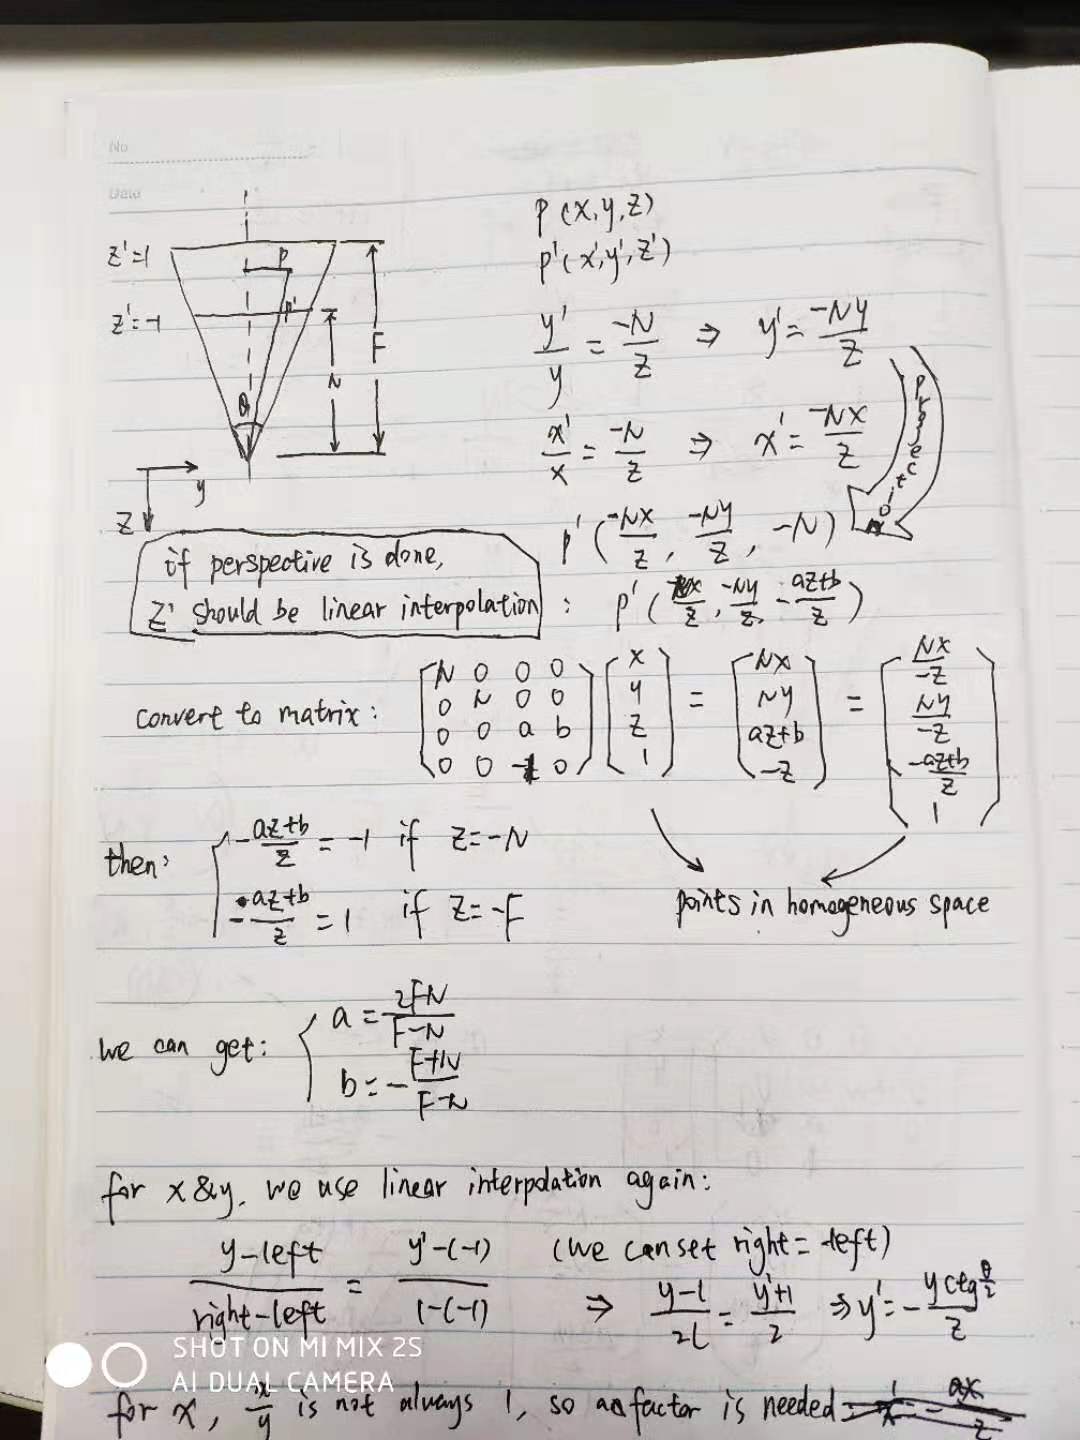 No
Date
z'=1
z'=-1
P
P'
N
F
θ
y
z
P(x,y,z)
P'(x',y',z')
y'/y = -N/z ⇒ y' = -Ny/z
x'/x = -N/z ⇒ x' = -Nx/z
projection
P'(-Nx/z, -Ny/z, -N)
if perspective is done,
z' should be linear interpolation : P'(-Nx/z, -Ny/z, -az+b/z)
convert to matrix: [N 0 0 0; 0 N 0 0; 0 0 a b; 0 0 -1 0] [x; y; z; 1] = [Nx; Ny; az+b; -z] = [Nx/-z; Ny/-z; -az+b/z; 1]
then: { -az+b/z = -1 if z=-N
-az+b/z = 1 if z=-F
points in homogeneous space
we can get: { a = 2FN/F-N
b = -F+N/F-N
for x&y, we use linear interpolation again:
y-left/right-left = y'-(-1)/1-(-1) (we can set right = -left)
⇒ y-l/2l = y'+1/2 ⇒ y' = -y ctg θ/2 / z
SHOT ON MI MIX 2S
AI DUAL CAMERA
for x, x/y is not always 1, so a factor is needed